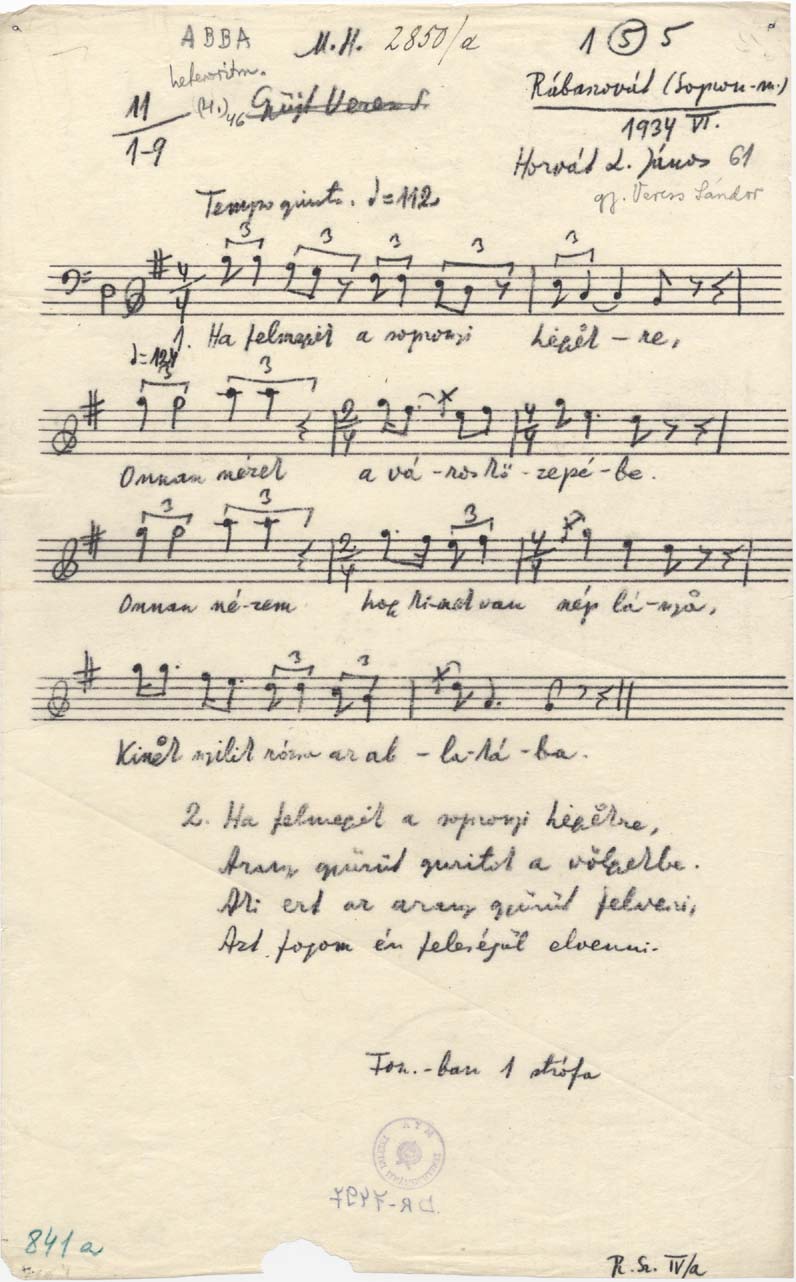 ABBA
M.H. 2850/a
1 5 5
heteroritm.
(H.) 46
Gyűjt Veress S.
11
1-9
Rábaszovát (Sopron-m.)
1934 VI.
Horvát L. János 61
gy. Veress Sándor
Tempo giusto. ♩=112
3 3 3 3 3
4/4
1. Ha felmegyët a sopronyi hëgyêt-re,
♩=124
3 3
2/4 4/4
Onnan nézek a vá-ros kö-zepé-be.
3 3 3
2/4 4/4
Onnan né-zem hogy ki-nek van szép lá-nya,
3 3
Kinêk nyilik rózsa az ab-la-ká-ba.
2. Ha felmegyëk a sopronyi hëgyêkre,
Arany gyűrűt guritok a völgyekbe.
Aki ezt az arany gyűrűt felveszi,
Azt fogom én feleségül elvenni.
Fon.-ban 1 strófa
DR-7497
841a
R. Sz. IV/a